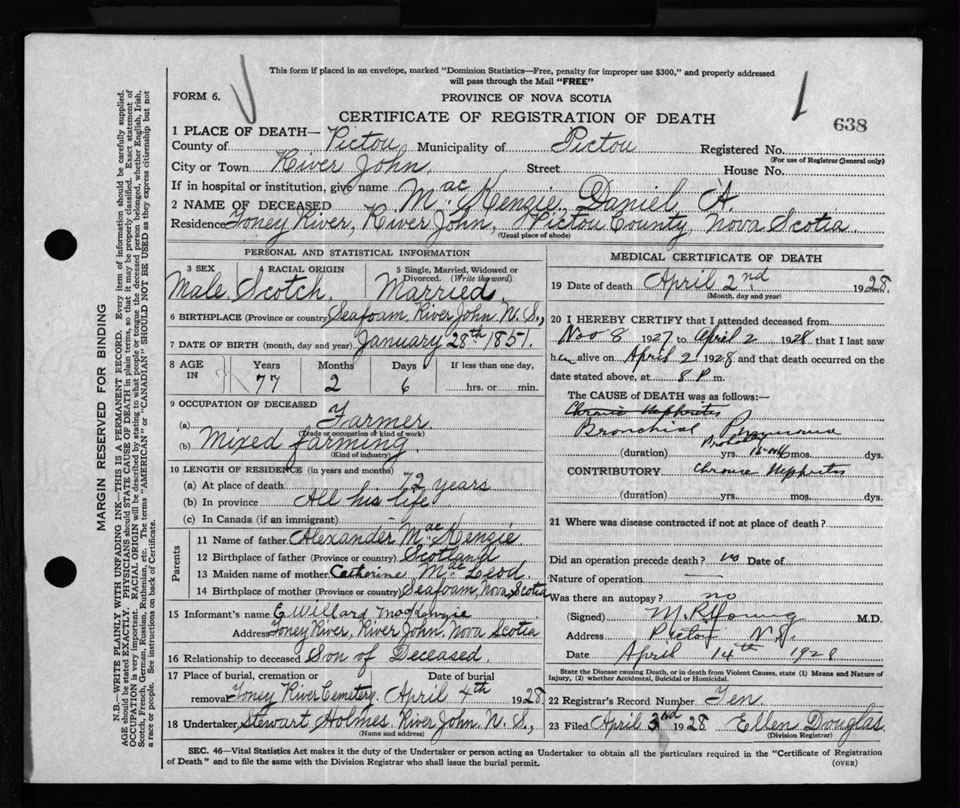 This form if placed in an envelope, marked "Dominion Statistics—Free, penalty for improper use $300," and properly addressed
will pass through the Mail "FREE"
FORM 6.
PROVINCE OF NOVA SCOTIA
CERTIFICATE OF REGISTRATION OF DEATH
638
1 PLACE OF DEATH—
County of Pictou Municipality of Pictou Registered No.
(For use of Registrar General only)
City or Town River John. Street House No.
If in hospital or institution, give name
2 NAME OF DECEASED MacKenzie, Daniel A.
Residence Toney River, River John, Pictou County, Nova Scotia.
(Usual place of abode)
PERSONAL AND STATISTICAL INFORMATION
3 SEX 4 RACIAL ORIGIN 5 Single, Married, Widowed or Divorced. (Write the word)
Male. Scotch. Married.
6 BIRTHPLACE (Province or country) Seafoam, River John, N.S.,
7 DATE OF BIRTH (month, day and year) January 28th 1851.
8 AGE IN Years Months Days If less than one day,
77 2 6 hrs. or min.
9 OCCUPATION OF DECEASED
(a) Farmer
(Trade or occupation of kind of work)
(b) Mixed farming.
(Kind of industry)
10 LENGTH OF RESIDENCE (in years and months)
(a) At place of death 72 years
(b) In province All his life.
(c) In Canada (if an immigrant)
Parents
11 Name of father Alexander MacKenzie
12 Birthplace of father (Province or country) Scotland
13 Maiden name of mother Catherine MacLeod.
14 Birthplace of mother (Province or country) Seafoam, Nova Scotia
15 Informant's name E. Willard MacKenzie
Address Toney River, River John, Nova Scotia
16 Relationship to deceased Son of Deceased.
17 Place of burial, cremation or removal Toney River Cemetery. Date of burial April 4th 1928.
18 Undertaker Stewart Holmes, River John, N.S.,
(Name and address)
MEDICAL CERTIFICATE OF DEATH
19 Date of death April 2nd. 1928.
(Month, day and year)
20 I HEREBY CERTIFY that I attended deceased from
Nov 8 1927 to April 2 1928 that I last saw
him alive on April 2 1928 and that death occurred on
date stated above, at 8 P m.
The CAUSE of DEATH was as follows:—
Chronic Nephritis
Bronchial Pneumonia
(duration) yrs. mos. dys.
CONTRIBUTORY Chronic Nephritis
(duration) yrs. mos. dys.
21 Where was disease contracted if not at place of death?
Did an operation precede death? no Date of
Nature of operation
Was there an autopsy? no
(Signed) M R Young M.D.
Address Pictou N.S.
Date April 14th 1928
State the Disease causing Death, or in death from Violent Causes, state (1) Means and Nature of
Injury, (2) whether Accidental, Suicidal or Homicidal.
22 Registrar's Record Number Ten.
23 Filed April 3rd 1928 Ellen Douglas
(Division Registrar)
SEC. 46—Vital Statistics Act makes it the duty of the Undertaker or person acting as Undertaker to obtain all the particulars required in the "Certificate of Registration
of Death" and to file the same with the Division Registrar who shall issue the burial permit.
(OVER)
MARGIN RESERVED FOR BINDING
N.B.—WRITE PLAINLY WITH UNFADING INK—THIS IS A PERMANENT RECORD. Every item of information should be carefully supplied.
AGE should be stated EXACTLY. PHYSICIANS should STATE CAUSE OF DEATH in plain terms, so that it may be properly classified. Exact statement of
OCCUPATION is very important. RACIAL ORIGIN will be described by stating to what people or tongue the deceased person belonged, whether English, Irish,
Scotch, French, German, Russian, Ruthenian, etc. The terms "AMERICAN" or "CANADIAN" SHOULD NOT BE USED as they express citizenship but not
a race or people. See instructions on back of Certificate.